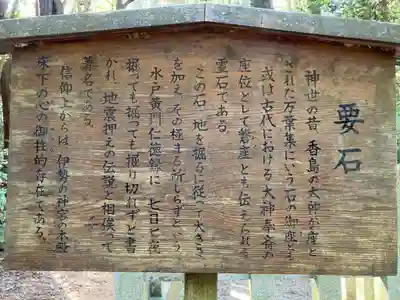 要石
神世の昔 香島の大神が座と
された万葉集にいう石の御座とも
或は古代における大神奉斎の
座位として磐座とも伝えられる
霊石である。
この石、地を掘るに従って大きさ
を加え その極まる所しらずという。
水戸黄門仁徳録に 七日七夜
掘っても掘っても掘り切れずと書
かれ、地震押えの伝説と相俟って
著名である。
信仰上からは 伊勢の神宮の本殿
床下の心の御柱的存在である。